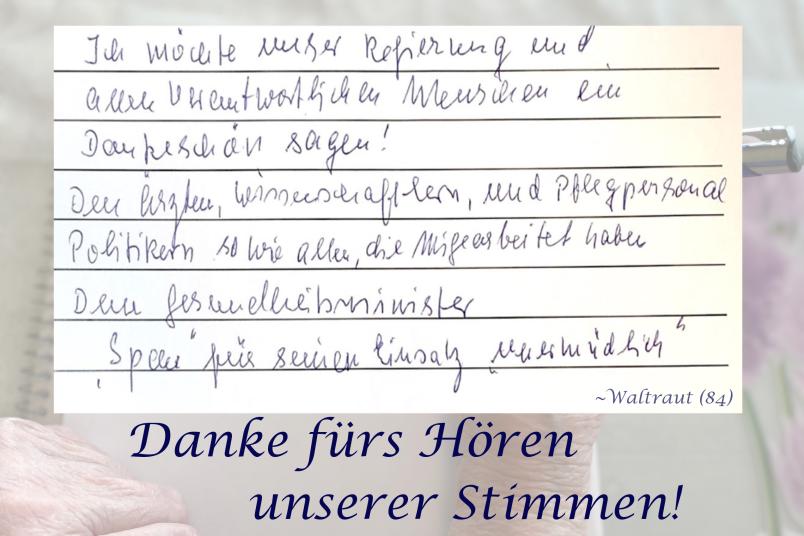 Ich möchte unser Regierung und
allen Verantwortlichen Menschen ein
Dankeschön sagen!
Den Ärzten, Wissenschafftlern, und Pflegpersonal
Politikern so wie allen, die Mitgearbeitet haben
Dem Gesundheitsminister
„Span" für seinen Einsatz „unermüdlich"
~Waltraut (84)
Danke fürs Hören
unserer Stimmen!